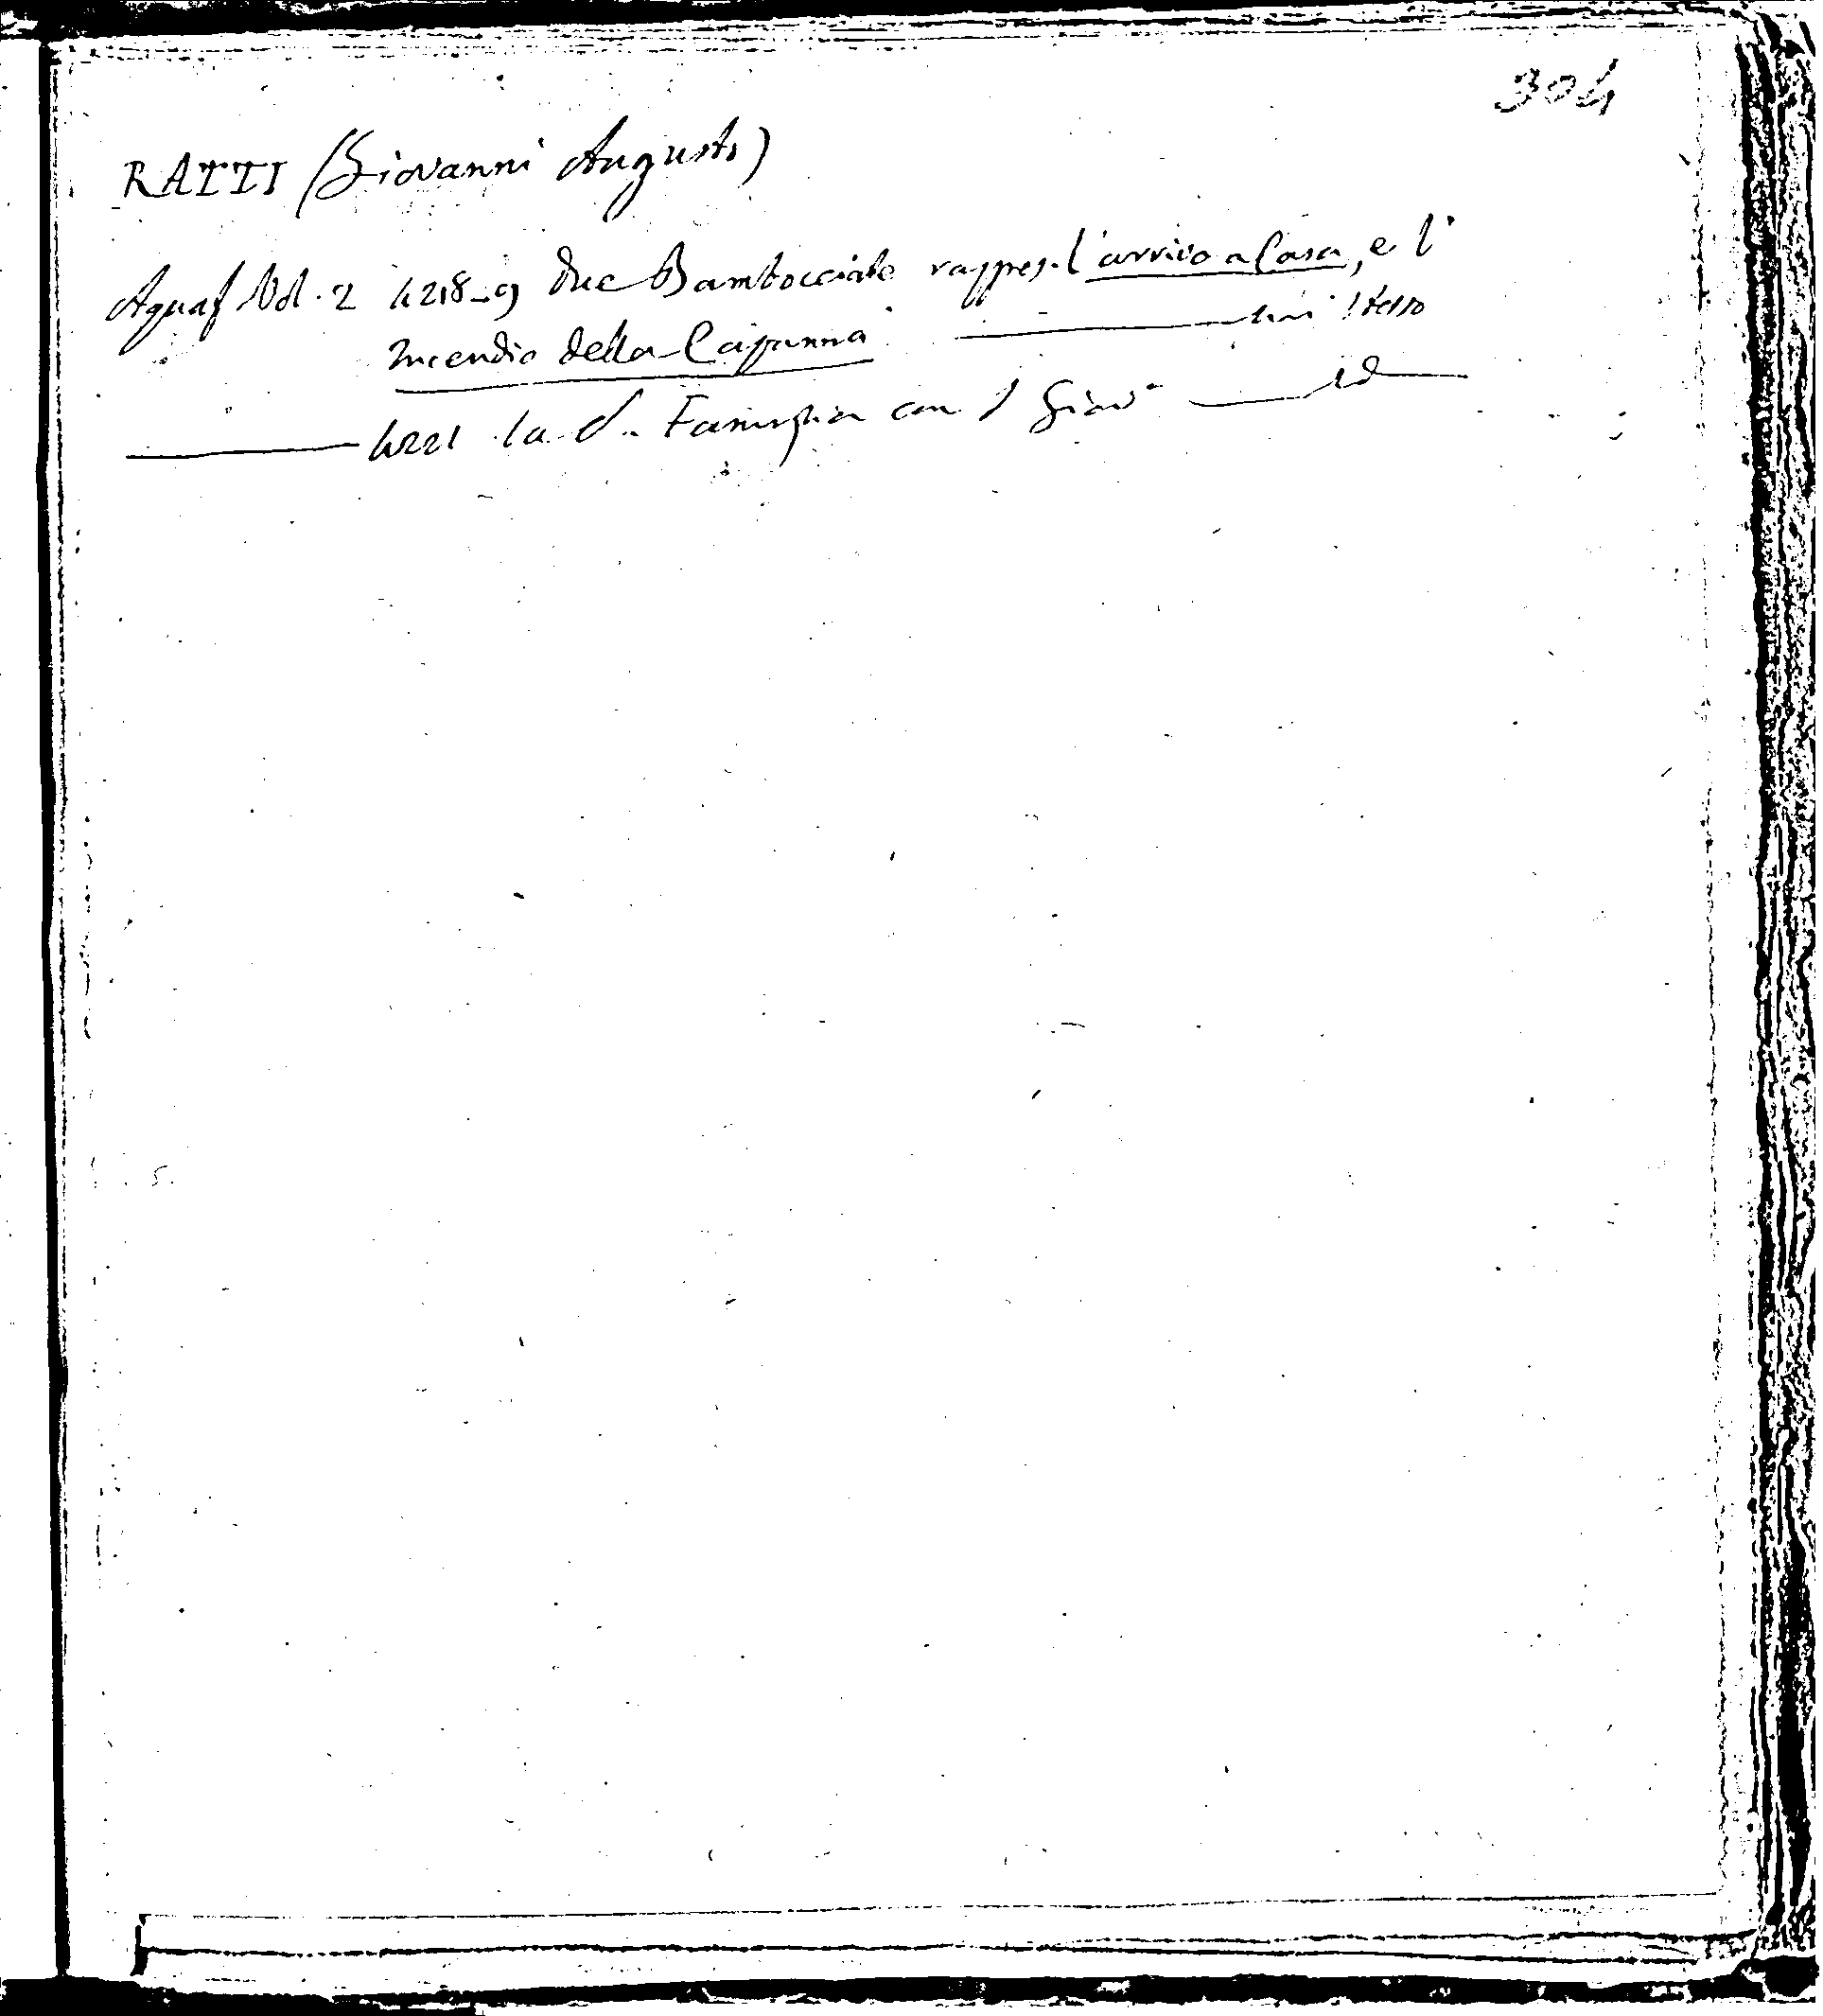 304
RATTI (Giovanni Augusto)
Aquaf. Vol. 2 4218-9 due Bambocciate rappres. l'arrivo a Casa, e l'
Incendio della Capanna lui stesso
4221 la S. Famiglia con S Giov°